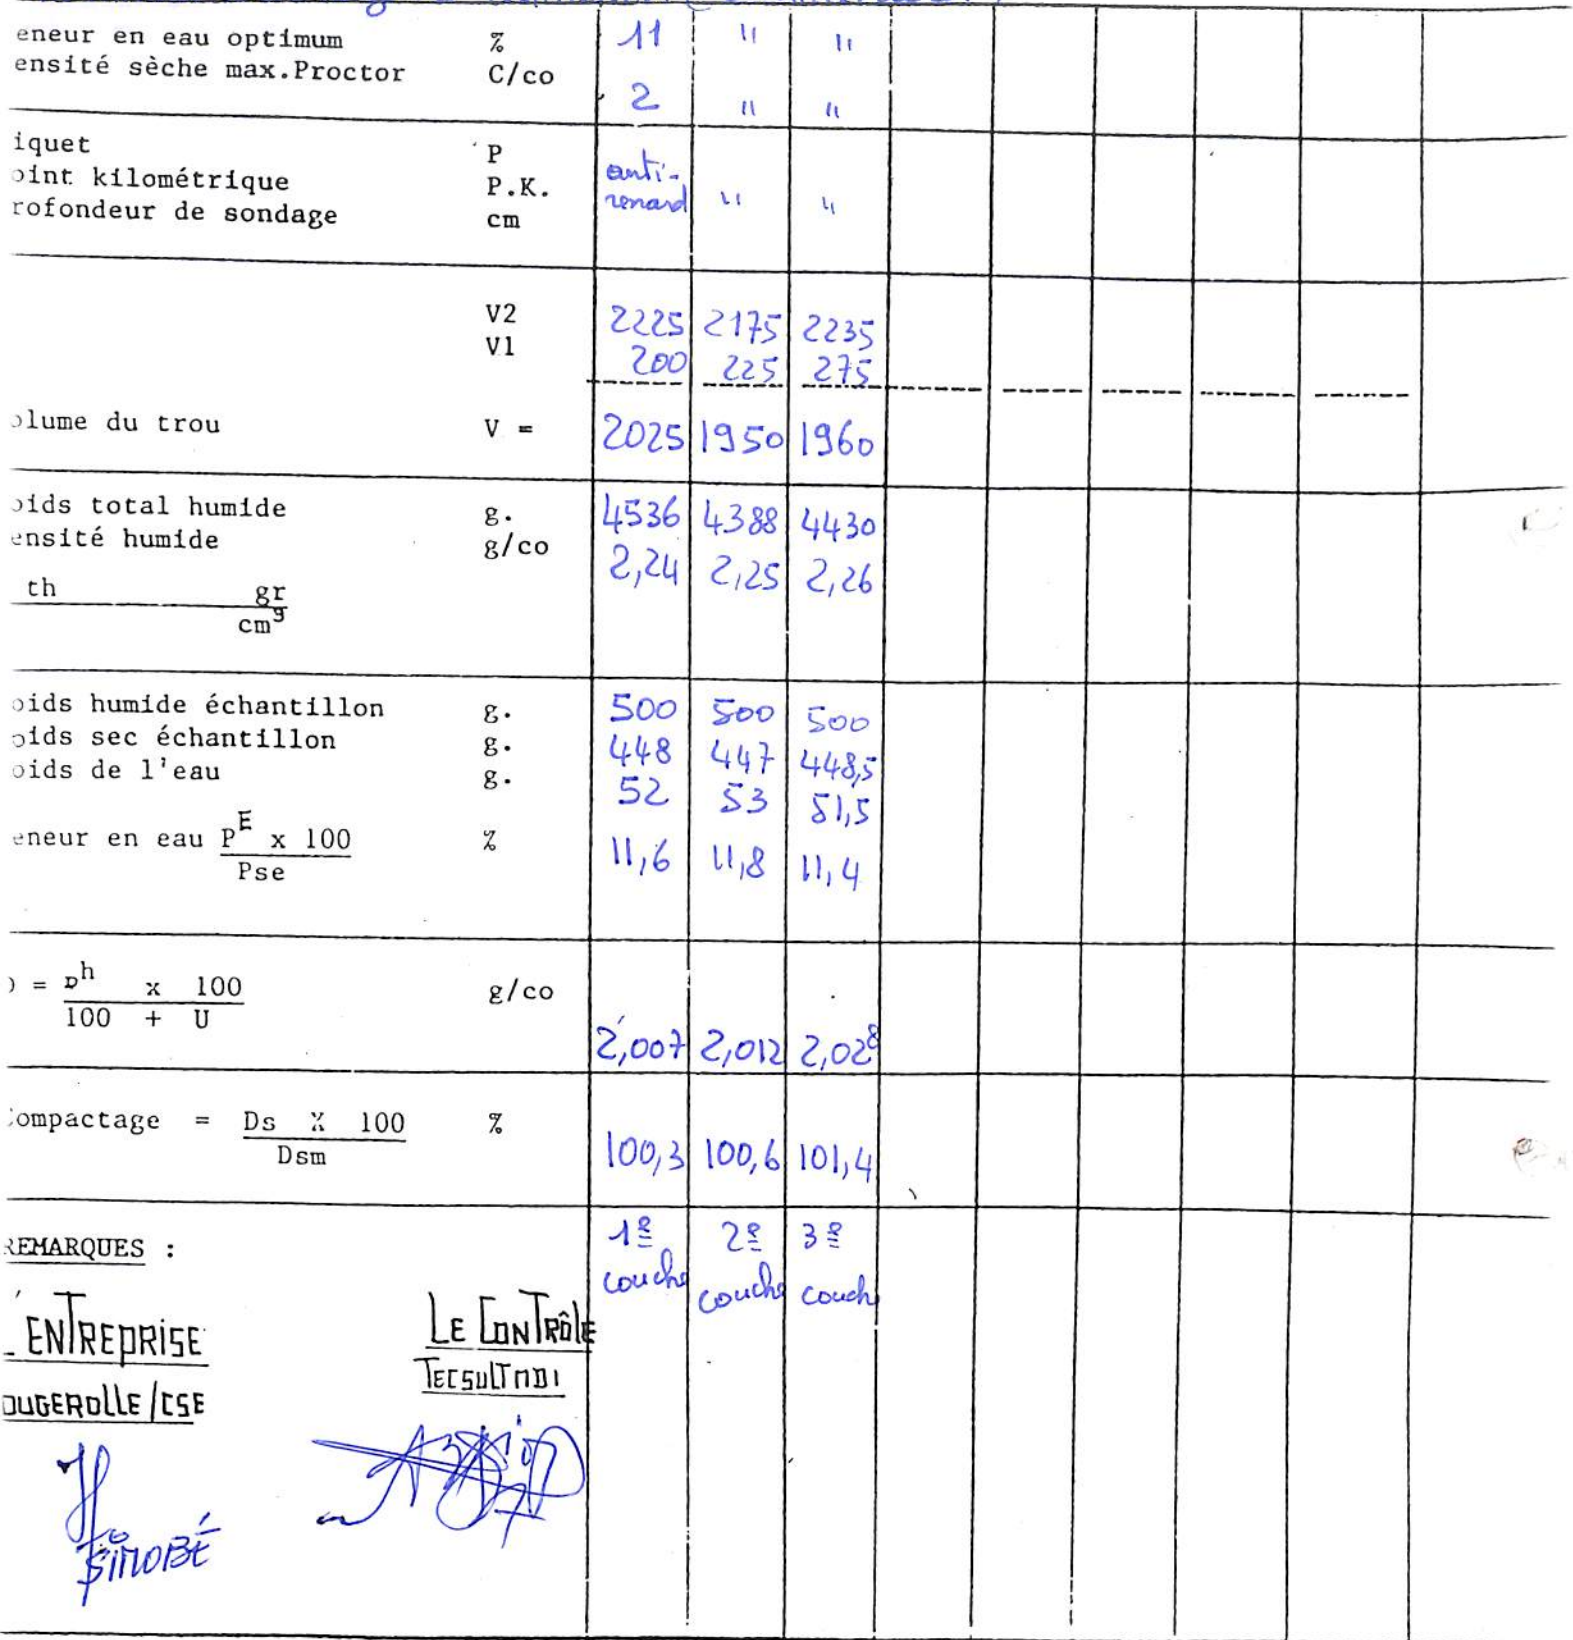 eneur en eau optimum % 11 " "
ensité sèche max.Proctor C/co 2 " "
iquet P
oint kilométrique P.K. anti-renard " "
rofondeur de sondage cm
V2 2225 2175 2235
V1 200 225 275
olume du trou V = 2025 1950 1960
oids total humide g. 4536 4388 4430
ensité humide g/co 2,24 2,25 2,26
th gr
cm3
oids humide échantillon g. 500 500 500
oids sec échantillon g. 448 447 448,5
oids de l'eau g. 52 53 51,5
eneur en eau PE x 100 % 11,6 11,8 11,4
Pse
) = Dh x 100 g/co
100 + U
2,007 2,012 2,028
Compactage = Ds X 100 % 100,3 100,6 101,4
Dsm
REMARQUES : 1e couche 2e couche 3e couch
ENTREPRISE LE CONTRÔLE
OUGEROLLE/CSE TECSULT MDI
SIMOBÉ